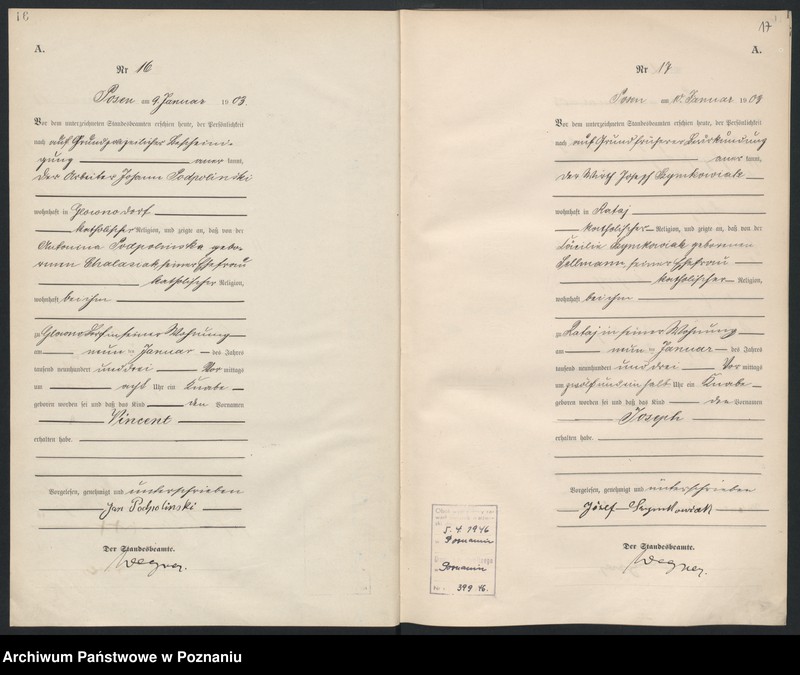 16
A.
Nr 16
Posen am 9. Januar 1903.
Vor dem unterzeichneten Standesbeamten erschien heute, der Persönlichkeit
nach auf Grund polizeilicher Bescheini-
gung anerkannt,
der Arbeiter Johann Podpolinski
wohnhaft in Glowno Dorf
katholischer Religion, und zeigte an, daß von der
Antonina Podpolinska gebo-
renen Chalasiak, seiner Ehefrau
katholischer Religion,
wohnhaft bei ihm
zu Glowno Dorf in seiner Wohnung
am neun ten Januar des Jahres
tausend neunhundert und drei Vor mittags
um acht Uhr ein Knabe
geboren worden sei und daß das Kind den Vornamen
Vincent
erhalten habe.
Vorgelesen, genehmigt und unterschrieben
Jan Podpolinski
Der Standesbeamte.
Wegner.
17
A.
Nr 17
Posen am 10. Januar 1903
Vor dem unterzeichneten Standesbeamten erschien heute, der Persönlichkeit
nach auf Grund früherer Beurkundung
anerkannt,
der Wirth Joseph Szymkowiak
wohnhaft in Rataj
katholischer Religion, und zeigte an, daß von der
Cäcilie Szymkowiak geborenen
Sellmann, seiner Ehefrau
katholischer Religion,
wohnhaft bei ihm
zu Rataj in seiner Wohnung
am neun ten Januar des Jahres
tausend neunhundert und drei Vor mittags
um zwölf und ein halb Uhr ein Knabe
geboren worden sei und daß das Kind den Vornamen
Joseph
erhalten habe.
Vorgelesen, genehmigt und unterschrieben
Józef Szymkowiak
Der Standesbeamte.
Wegner.
5. 4. 1946
Poznaniu
Poznaniu
399 46.
Archiwum Państwowe w Poznaniu